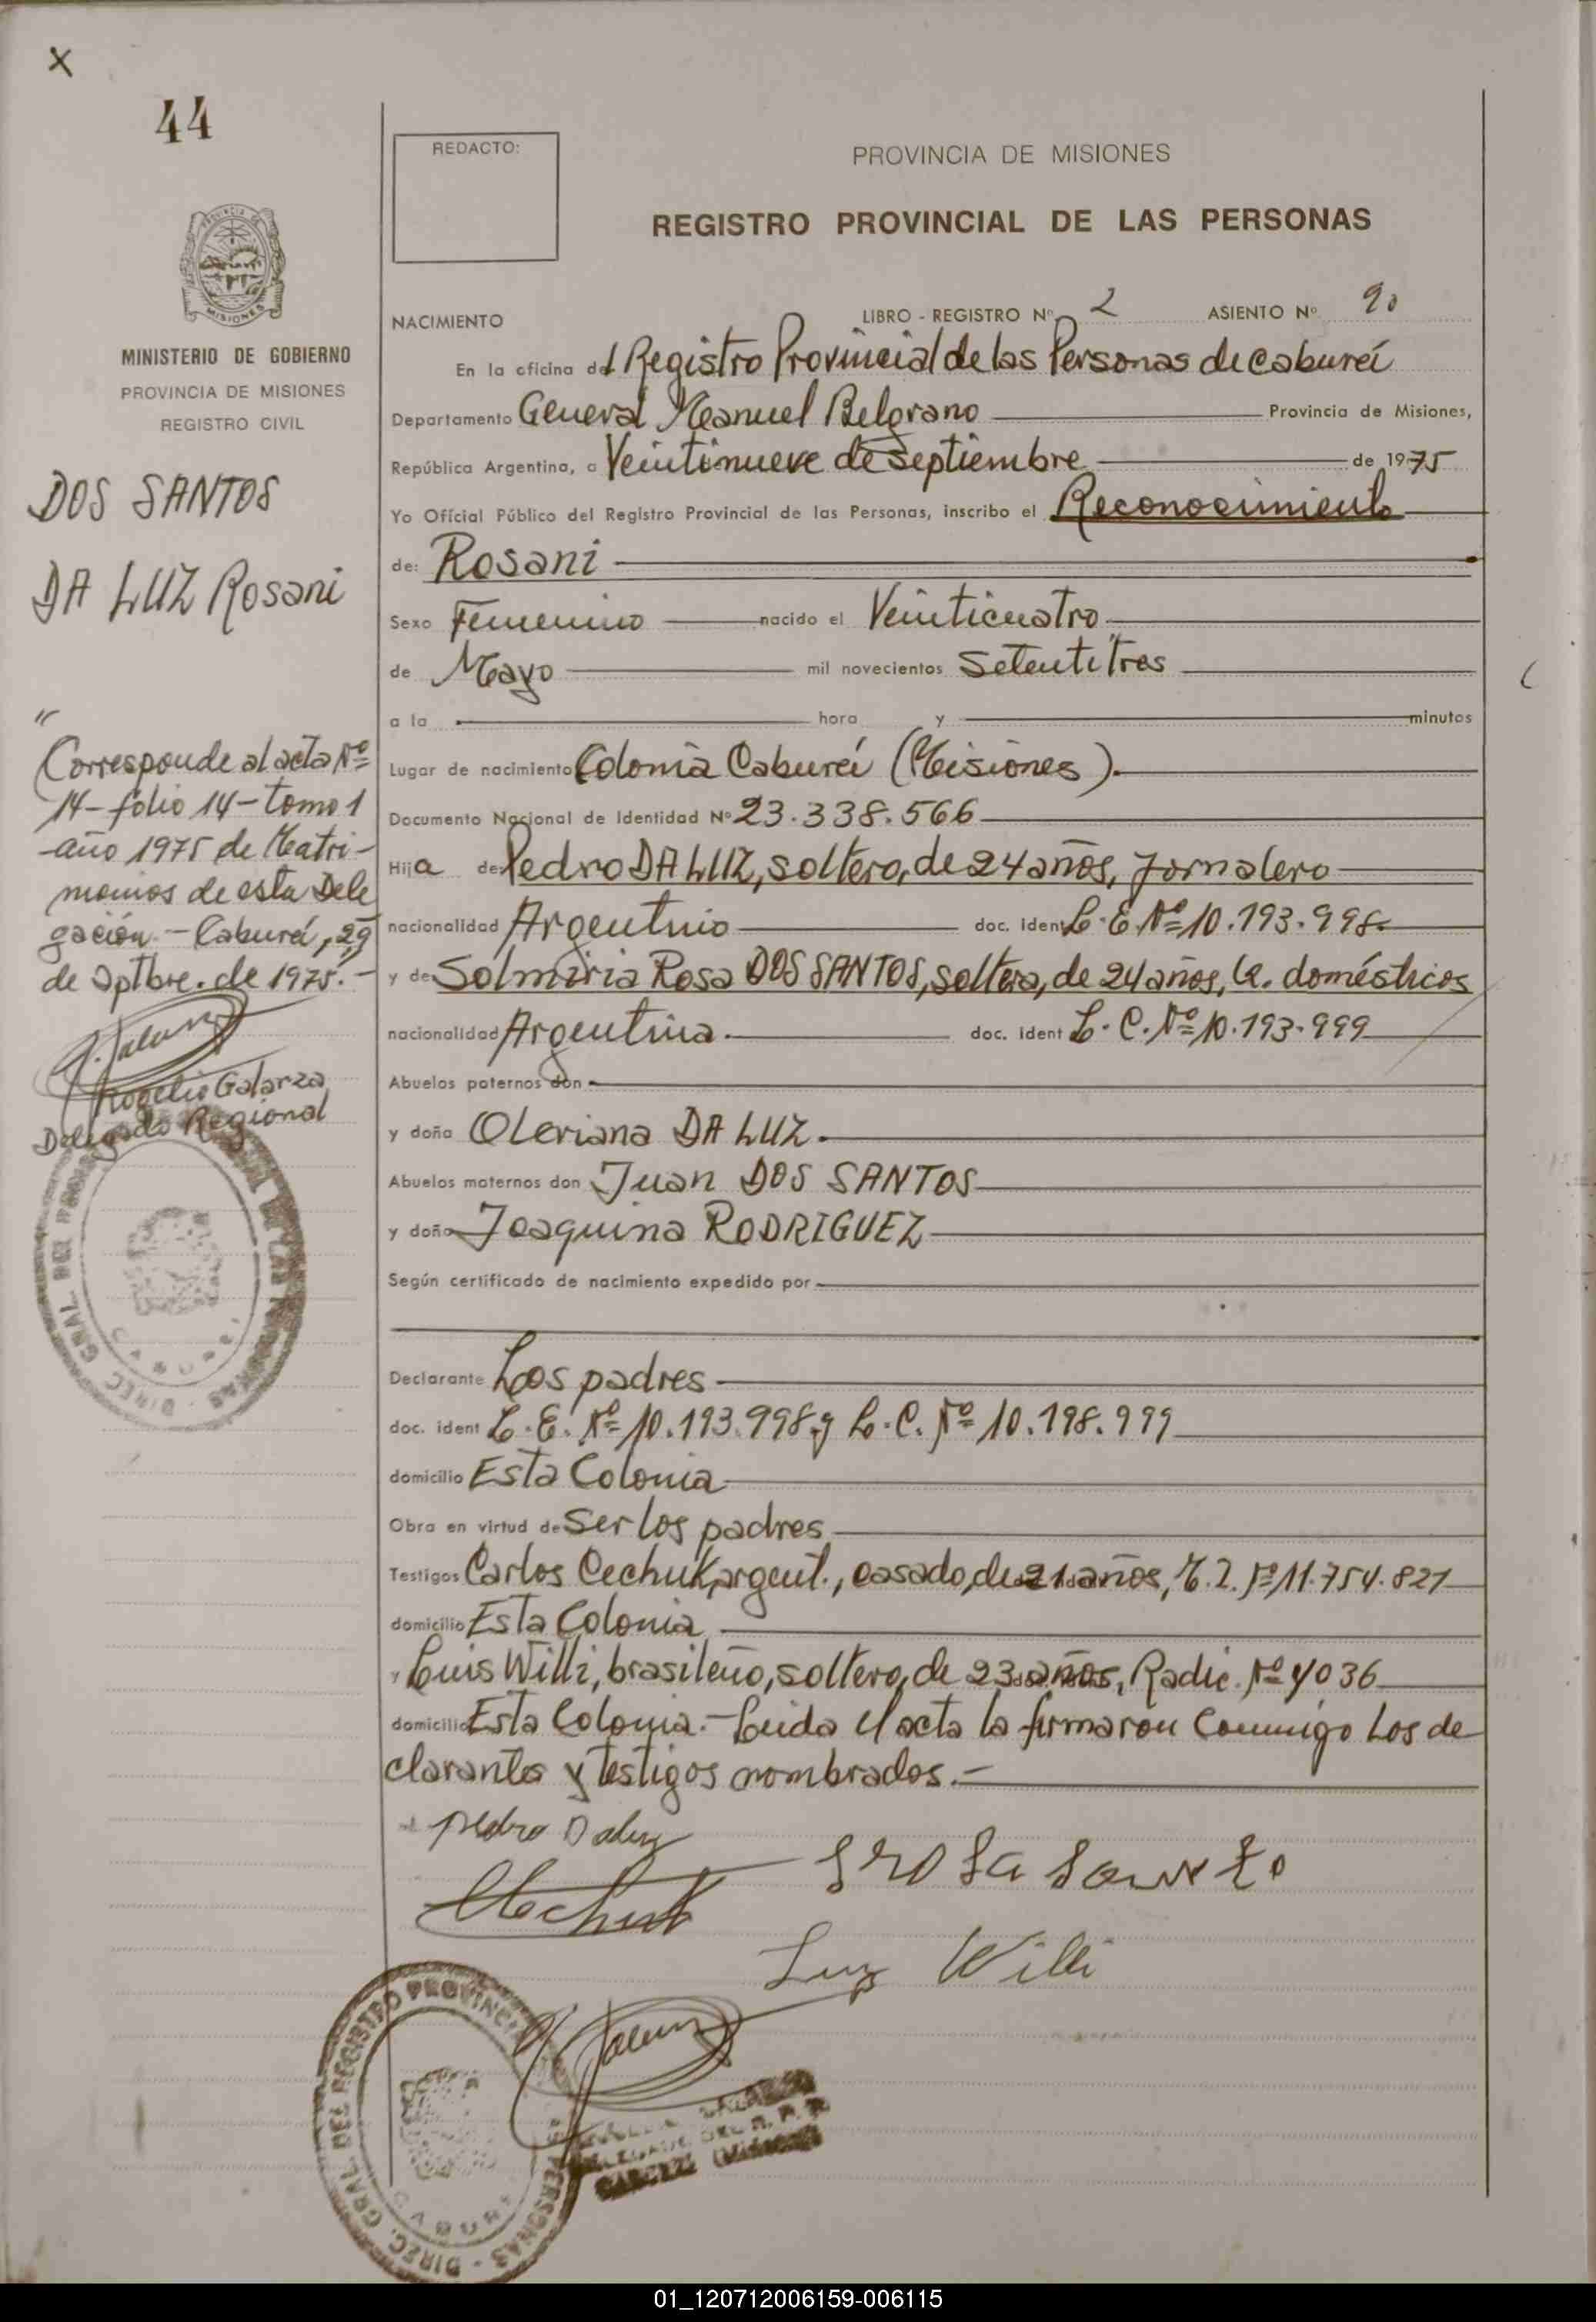 x
44
REDACTO:
PROVINCIA DE MISIONES
REGISTRO PROVINCIAL DE LAS PERSONAS
MISIONES
MINISTERIO DE GOBIERNO
PROVINCIA DE MISIONES
REGISTRO CIVIL
DOS SANTOS
DA LUZ Rosani
"Corresponde al acta Nº
14-folio 14-tomo 1
año 1975 de Matri-
monios de esta Dele
gación.- Caburei, 29
de Sptbre. de 1975.-
Rogelio Galarza
Delegado Regional
NACIMIENTO LIBRO - REGISTRO Nº 2 ASIENTO Nº 90
En la oficina del Registro Provincial de las Personas de Caburei
Departamento General Manuel Belgrano Provincia de Misiones,
República Argentina, a Veintinueve de Septiembre de 1975
Yo Oficial Público del Registro Provincial de las Personas, inscribo el Reconocimiento
de: Rosani
Sexo Femenino nacido el Veinticuatro
de Mayo mil novecientos Setentitres
a la hora y minutos
Lugar de nacimiento Colonia Caburei (Misiones).
Documento Nacional de Identidad Nº 23.338.566
Hija de: Pedro DA LUZ, soltero, de 24 años, Jornalero
nacionalidad Argentino doc. ident L.E. Nº 10.193.998.
y de Solmiria Rosa DOS SANTOS, soltera, de 24 años, Q. domésticos
nacionalidad Argentina. doc. ident L.C. Nº 10.193.999
Abuelos paternos don
y doña Oleriana DA LUZ.
Abuelos maternos don Juan DOS SANTOS
y doña Joaquina RODRIGUEZ
Según certificado de nacimiento expedido por
Declarante Los padres
doc. ident L.E. Nº 10.193.998 y L.C. Nº 10.198.999
domicilio Esta Colonia
Obra en virtud de Ser los padres
Testigos Carlos Cechuk, argent., casado, de 21 años, M.I. Nº 11.754.821
domicilio Esta Colonia
y Luis Willi, brasileño, soltero, de 23 años, Radic. Nº 4036
domicilio Esta Colonia.- Leida el acta la firmaron Conmigo Los de
clarantes y testigos nombrados.-
pedro Daluz
Cechuk
Luiz Willi
DIREC. GRAL. DEL REGISTRO PROVINCIAL PERSONAS
01_120712006159-006115